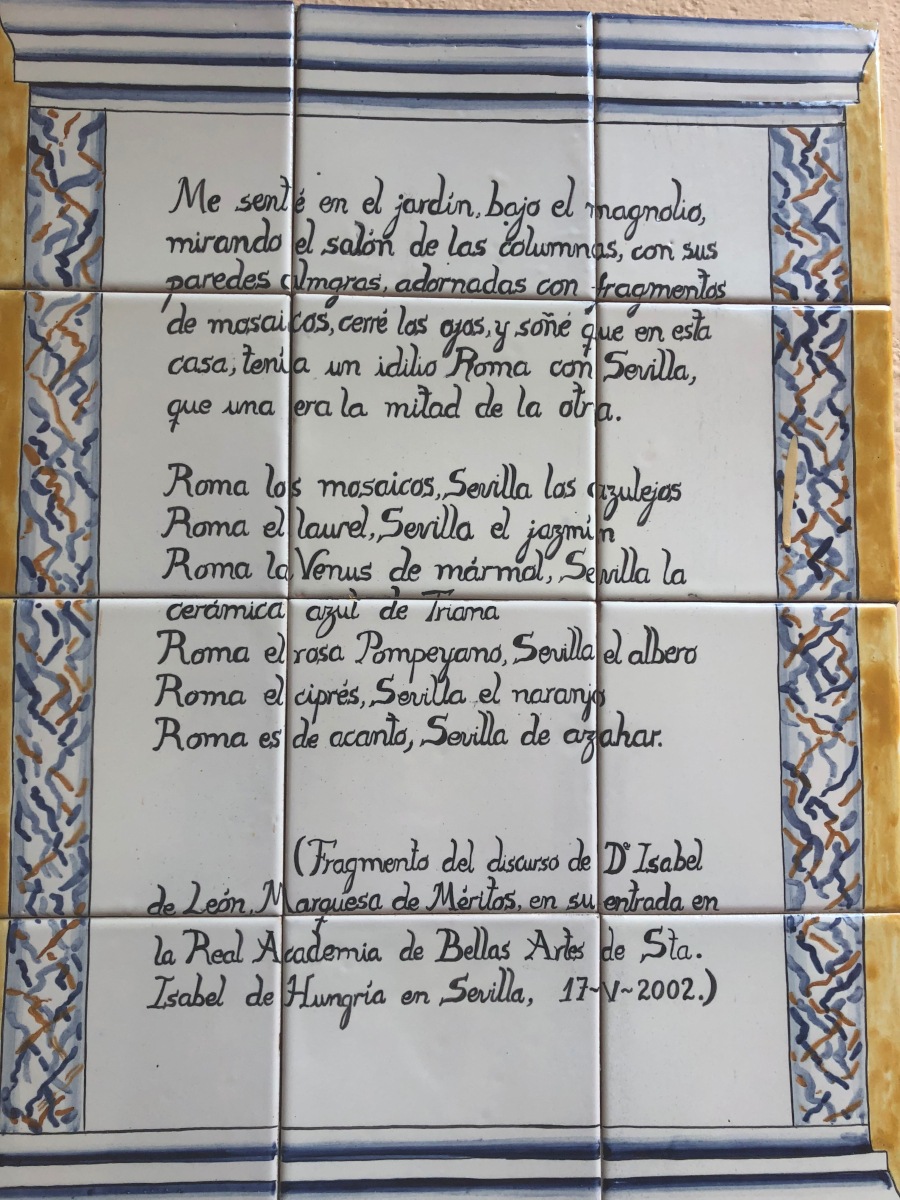 Me senté en el jardín, bajo el magnolio,
mirando el salón de las columnas, con sus
paredes almgras, adornadas con fragmentos
de mosaicos, cerré los ojos, y soñé que en esta
casa, tenía un idilio Roma con Sevilla,
que una era la mitad de la otra.
Roma los mosaicos, Sevilla los azulejos
Roma el laurel, Sevilla el jazmín
Roma la Venus de mármol, Sevilla la
cerámica azul de Triana
Roma el rosa Pompeyano, Sevilla el albero
Roma el ciprés, Sevilla el naranjo
Roma es de acanto, Sevilla de azahar.
(Fragmento del discurso de Dª Isabel
de León, Marquesa de Méritos, en su entrada en
la Real Academia de Bellas Artes de Sta.
Isabel de Hungría en Sevilla, 17~V~2002.)